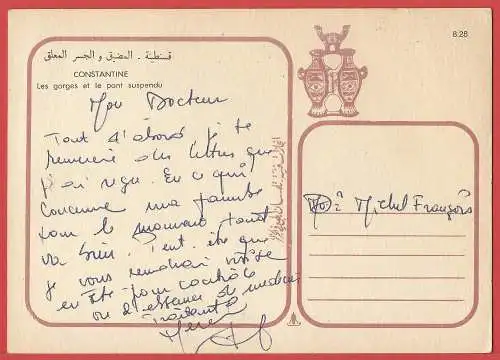 قسنطينة . المضيق و الجسر المعلق
CONSTANTINE
Les gorges et le pont suspendu
8.28
Mon Docteur
Tout d'abord je te
remercie des lettres que
j'ai reçu. En ce qui
concerne ma jambe
pour le moment tout
va bien. Peut être que
je vous rendrai visite
en Eté pour contrôle
ou d'absence de médecin
traitant
Merci
Michel François